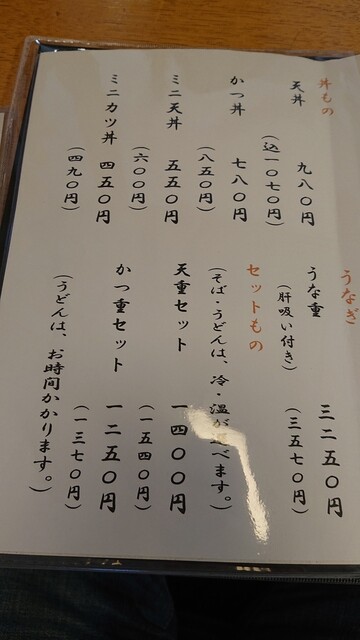 丼もの
天丼 九八〇円
(込一〇七〇円)
かつ丼 七八〇円
(八五〇円)
ミニ天丼 五五〇円
(六〇〇円)
ミニカツ丼 四五〇円
(四九〇円)
うなぎ
うな重 三二五〇円
(肝吸い付き) (三五七〇円)
セットもの
(そば・うどんは、冷・温が選べます。)
天重セット 一四〇〇円
(一五四〇円)
かつ重セット 一二五〇円
(一三七〇円)
(うどんは、お時間かかります。)